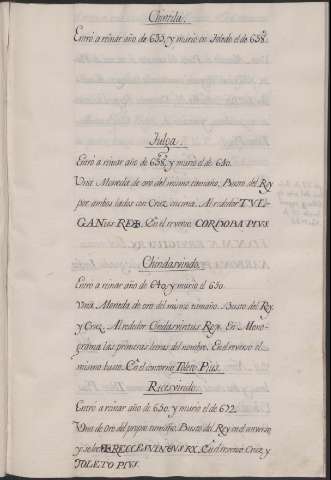 Chintila.
Entró a reinar año de 635, y murio en Toledo el de 638.
Tulga.
Entró a reinar año de 638, y murio el de 640.
Una Moneda de oro del mismo tamaño. Busto del Rey
por ambos lados con Cruz encima. Al rededor TVL
GAN REX. En el reverso CORDOBA PIUS
Chindasvindo.
Entro a reinar año de 640, y murio el 650.
Una Moneda de oro del mismo tamaño. Busto del Rey
y Cruz. Al rededor Cindasvintus Rex. En Mono
grama las primeras letras del nombre. En el reverso el
mismo busto. En el contorno Toleto Pius.
Recesvindo.
Entro a reinar año de 650, y murio el de 672.
Una de oro del propio tamaño. Busto del Rey en el anverso,
y sobre RECCESVINΘVS RX. En el reverso Cruz, y
TOLETO PIVS.